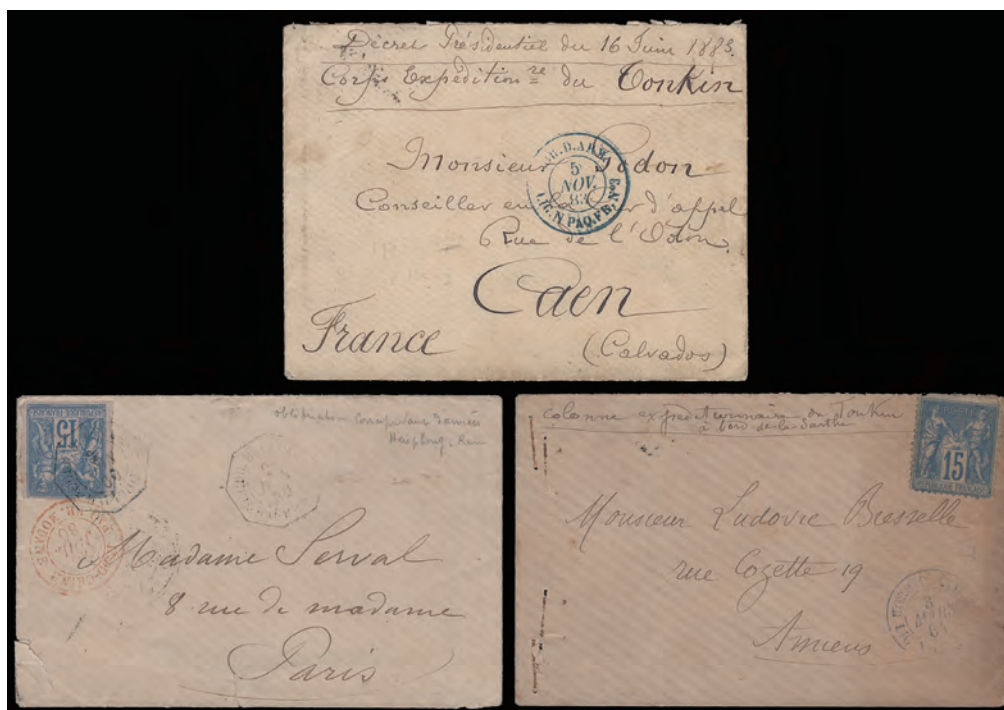 Décret Présidentiel du 16 Juin 1883.
Corps Expéditionre du Tonkin
Monsieur Podon
Conseiller en la Cour d'appel
Rue de l'Odon.
Caen
France
(Calvados)
COR.D.ARM.
5
NOV.
83
LIG.N PAQ.FR.N°5
15
REPUBLIQUE FRANÇAISE
Madame Serval
8 rue de madame
Paris
colonne expéditionnaire du Tonkin
à bord de la Sarthe
POSTE
15
REPUBLIQUE FRANÇAISE
Monsieur Ludovic Bresselle
rue Cozette 19
Amiens